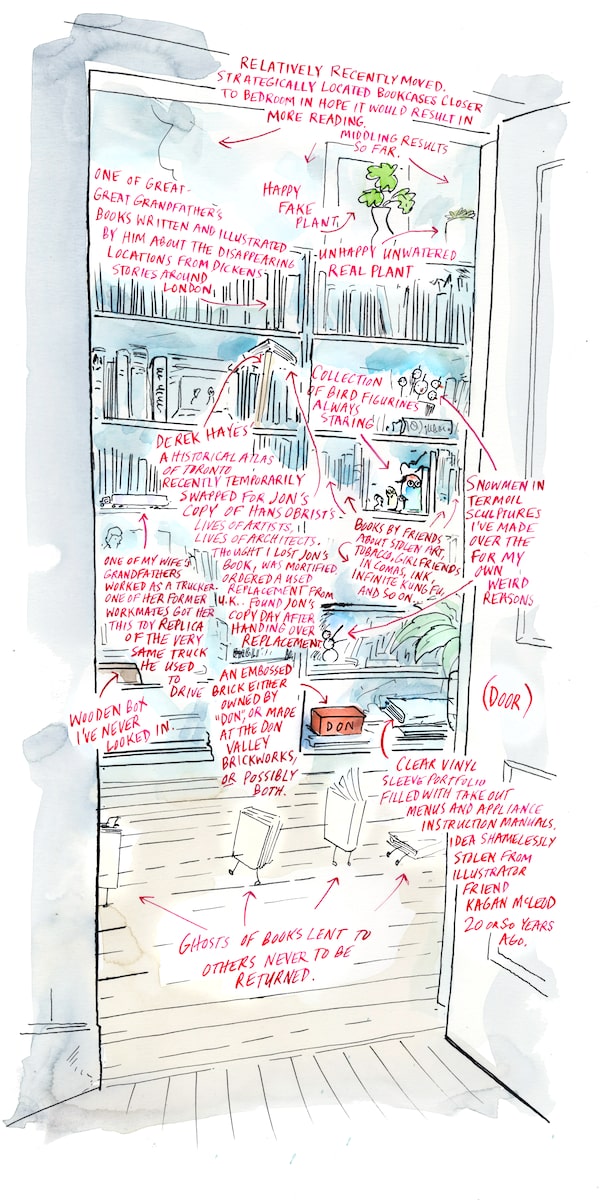 RELATIVELY RECENTLY MOVED.
STRATEGICALLY LOCATED BOOKCASES CLOSER
TO BEDROOM IN HOPE IT WOULD RESULT IN
MORE READING.
MIDDLING RESULTS
SO FAR.
ONE OF GREAT-
GREAT GRANDFATHER'S
BOOKS WRITTEN AND ILLUSTRATED
BY HIM ABOUT THE DISAPPEARING
LOCATIONS FROM DICKENS
STORIES AROUND
LONDON.
HAPPY
FAKE
PLANT
UNHAPPY UNWATERED
REAL PLANT
COLLECTION
OF BIRD FIGURINES
ALWAYS
STARING
DEREK HAYES'
A HISTORICAL ATLAS
OF TORONTO
RECENTLY TEMPORARILY
SWAPPED FOR JON'S
COPY OF HANS OBRIST'S
LIVES OF ARTISTS,
LIVES OF ARCHITECTS.
THOUGHT I LOST JON'S
BOOK, WAS MORTIFIED
ORDERED A USED
REPLACEMENT FROM
U.K.. FOUND JON'S
COPY DAY AFTER
HANDING OVER
REPLACEMENT
SNOWMEN IN
TERMOIL
SCULPTURES
I'VE MADE
OVER THE
FOR MY
OWN
WEIRD
REASONS
BOOKS BY FRIENDS
ABOUT STOLEN ART,
TOBACCO, GIRLFRIENDS
IN COMAS, INK,
INFINITE KUNG FU,
AND SO ON...
ONE OF MY WIFE'S
GRANDFATHERS
WORKED AS A TRUCKER.
ONE OF HER FORMER
WORKMATES GOT HER
THIS TOY REPLICA
OF THE VERY
SAME TRUCK
HE USED
TO
DRIVE
WOODEN BOX
I'VE NEVER
LOOKED IN.
AN EMBOSSED
BRICK EITHER
OWNED BY
"DON", OR MADE
AT THE DON
VALLEY
BRICKWORKS,
OR POSSIBLY
BOTH.
DON
(DOOR)
CLEAR VINYL
SLEEVE PORTFOLIO
FILLED WITH TAKE OUT
MENUS AND APPLIANCE
INSTRUCTION MANUALS.
IDEA SHAMELESSLY
STOLEN FROM
ILLUSTRATOR
FRIEND
KAGAN McLEOD
20 OR SO YEARS
AGO.
GHOSTS OF BOOKS LENT TO
OTHERS NEVER TO BE
RETURNED.